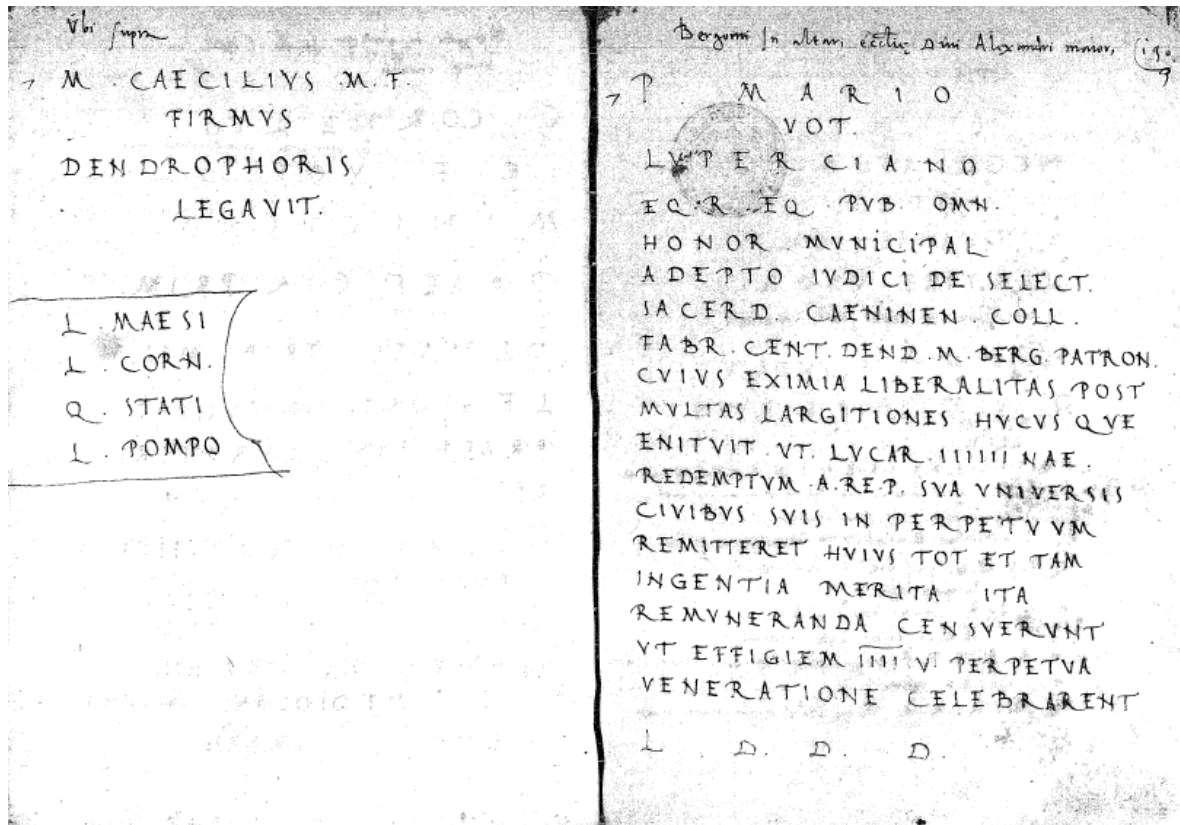 Vbi supra
M . CAECILIVS .M. F.
FIRMVS
DENDROPHORIS
LEGAVIT.
L . MAESI
L . CORN.
Q . STATI
L . POMPO
Bergomi In altari ecctię Diui Alexandri maior,
P. M A R I O
VOT.
LVPERCIANO
EQ.R. EQ PVB OMN.
HONOR MVNICIPAL
ADEPTO IVDICI DE SELECT.
SACERD. CAENINEN . COLL .
FABR . CENT. DEND . M . BERG. PATRON.
CVIVS EXIMIA LIBERALITAS POST
MVLTAS LARGITIONES HVCVS QVE
ENITVIT . VT. LVCAR. IIIIIII NAE.
REDEMPTVM A.RE.P. SVA VNIVERSIS
CIVIBVS SVIS IN PERPETVVM
REMITTERET HVIVS TOT ET TAM
INGENTIA MERITA ITA
REMVNERANDA CENSVERVNT
VT EFFIGIEM IIII VI PERPETVA
VENERATIONE CELEBRARENT
L . D. D. D.